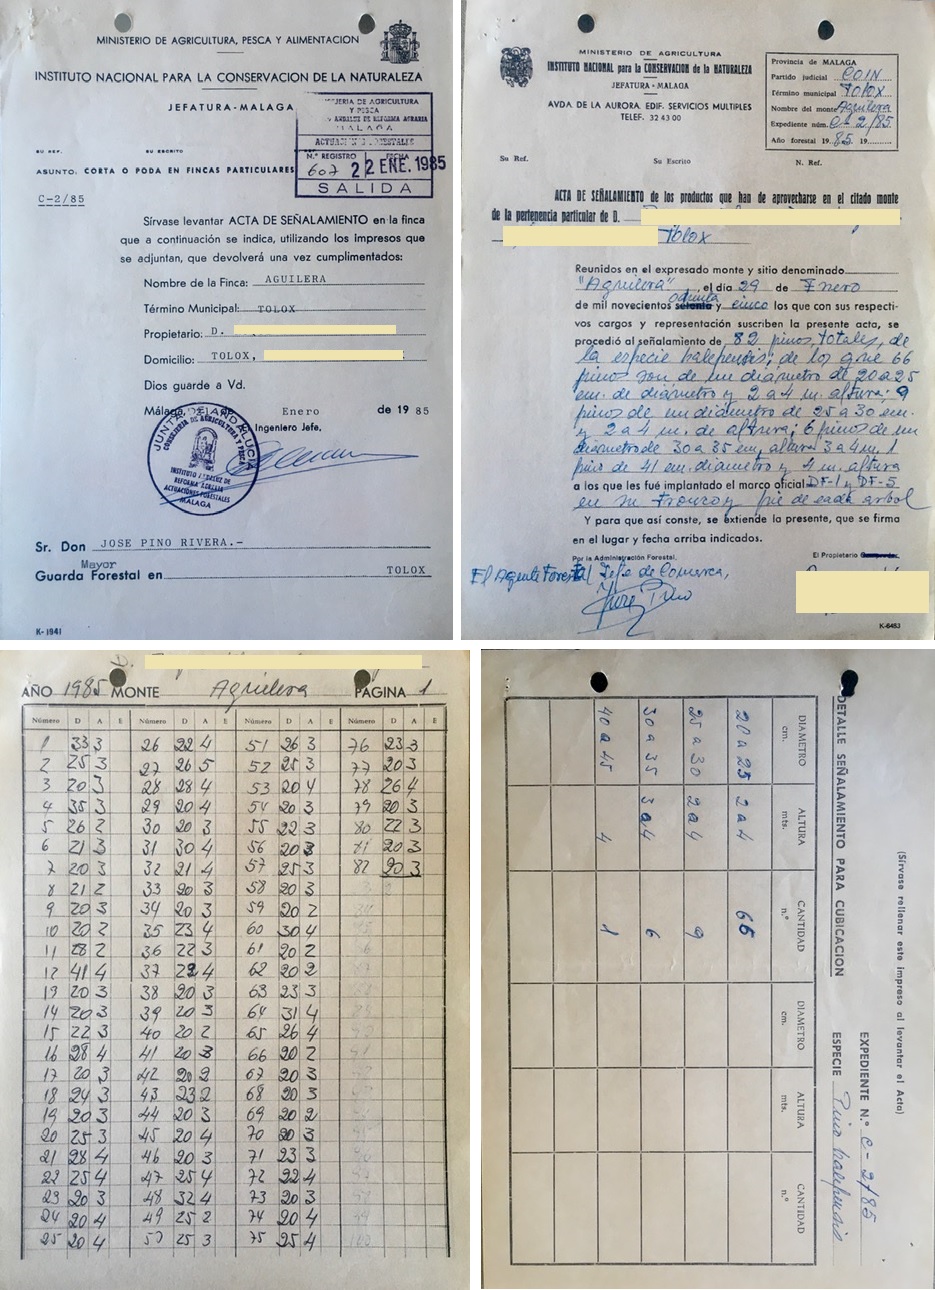 MINISTERIO DE AGRICULTURA, PESCA Y ALIMENTACION
INSTITUTO NACIONAL PARA LA CONSERVACION DE LA NATURALEZA
JEFATURA-MALAGA
JERIA DE AGRICULTURA
Y PESCA
ANDALUZ DE REFORMA AGRARIA
MALAGA
N.º REGISTRO FECHA
607 22 ENE. 1985
SALIDA
SU REF. SU ESCRITO
ASUNTO: CORTA O PODA EN FINCAS PARTICULARES
C-2/85
Sírvase levantar ACTA DE SEÑALAMIENTO en la finca
que a continuación se indica, utilizando los impresos que
se adjuntan, que devolverá una vez cumplimentados:
Nombre de la Finca: AGUILERA
Término Municipal: TOLOX
Propietario: D.
Domicilio: TOLOX,
Dios guarde a Vd.
Málaga, de Enero de 1985
Ingeniero Jefe,
JUNTA DE ANDALUCIA
CONSEJERIA DE AGRICULTURA Y PESCA
INSTITUTO ANDALUZ DE
REFORMA AGRARIA
ACTUACIONES FORESTALES
MALAGA
Sr. Don JOSE PINO RIVERA.-
Mayor
Guarda Forestal en TOLOX
K-1941
MINISTERIO DE AGRICULTURA
INSTITUTO NACIONAL para la CONSERVACION de la NATURALEZA
JEFATURA - MALAGA
AVDA. DE LA AURORA. EDIF. SERVICIOS MULTIPLES
TELEF. 32 43 00
Provincia de MALAGA
Partido judicial COIN
Término municipal TOLOX
Nombre del monte Aguilera
Expediente núm. C-2/85
Año forestal 1985. 19
Su Ref. Su Escrito N. Ref.
ACTA DE SEÑALAMIENTO de los productos que han de aprovecharse en el citado monte
de la pertenencia particular de D.
Tolox
Reunidos en el expresado monte y sitio denominado
"Aguilera", el día 29 de Enero
ochenta
de mil novecientos setenta y cinco los que con sus respecti-
vos cargos y representación suscriben la presente acta, se
procedió al señalamiento de 82 pinos, totales, de
la especie halepensis; de los que 66
pinos son de un diámetro de 20 a 25
cm. de diámetro y 2 a 4 m. altura; 9
pinos de un diámetro de 25 a 30 cm.
y 2 a 4 m. de altura; 6 pinos de un
diámetro de 30 a 35 cm, altura 3 a 4 m. 1
pino de 41 cm. diámetro y 4 m. altura
a los que les fué implantado el marco oficial DF-1 y DF-5
en su tronco y pie de cada arbol
Y para que así conste, se extiende la presente, que se firma
en el lugar y fecha arriba indicados.
Por la Administración Forestal, El Propietario
El Agente Forestal Jefe de Comarca,
José Pino
K-6483
D.
AÑO 1985 MONTE Aguilera PAGINA 1
Número D A E Número D A E Número D A E D A E
1 33 3 26 22 4 51 26 3 76 23 3
2 25 3 27 26 5 52 25 3 77 20 3
3 20 3 28 28 4 53 20 4 78 26 4
4 35 3 29 20 4 54 20 3 79 20 3
5 26 2 30 20 3 55 22 3 80 22 3
6 21 3 31 30 4 56 20 3 81 20 3
7 20 3 32 21 4 57 25 3 82 20 3
8 21 2 33 20 3 58 20 3
9 20 3 34 20 3 59 20 2
10 20 2 35 23 4 60 30 4
11 28 2 36 22 3 61 20 2
12 41 4 37 22 4 62 20 2
13 20 3 38 20 3 63 23 3
14 20 3 39 20 3 64 31 4
15 22 3 40 20 2 65 26 4
16 28 4 41 20 3 66 20 2
17 20 3 42 20 2 67 20 3
18 24 3 43 23 2 68 20 3
19 20 3 44 20 3 69 20 2
20 25 3 45 20 4 70 20 3
21 28 4 46 20 3 71 23 3
22 25 4 47 25 4 72 22 4
23 20 3 48 32 4 73 20 3
24 20 4 49 25 2 74 20 4
25 20 4 50 25 3 75 25 4
(Sírvase rellenar este impreso al levantar el Acta)
EXPEDIENTE N.º C-2/85
DETALLE SEÑALAMIENTO PARA CUBICACION ESPECIE Pino halepensis
DIAMETRO cm. ALTURA mts. CANTIDAD n.º DIAMETRO cm. ALTURA mts. CANTIDAD n.º
20 a 25 2 a 4 66
25 a 30 2 a 4 9
30 a 35 3 a 4 6
40 a 45 4 1